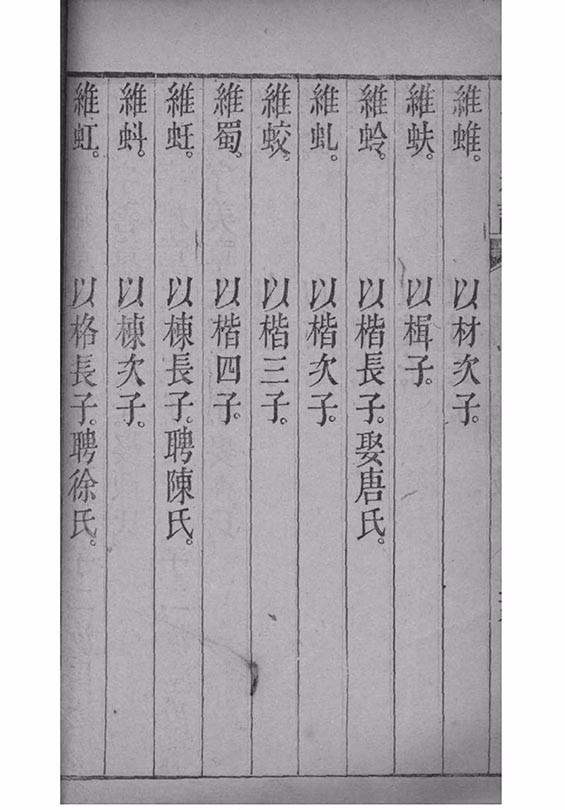 維蜼。以材次子。
維蚨。以楫子。
維蛉。以楷長子。娶唐氏。
維虬。以楷次子。
維蛟。以楷三子。
維蜀。以楷四子。
維蚟。以棟長子。聘陳氏。
維蚪。以棟次子。
維虹。以格長子。聘徐氏。